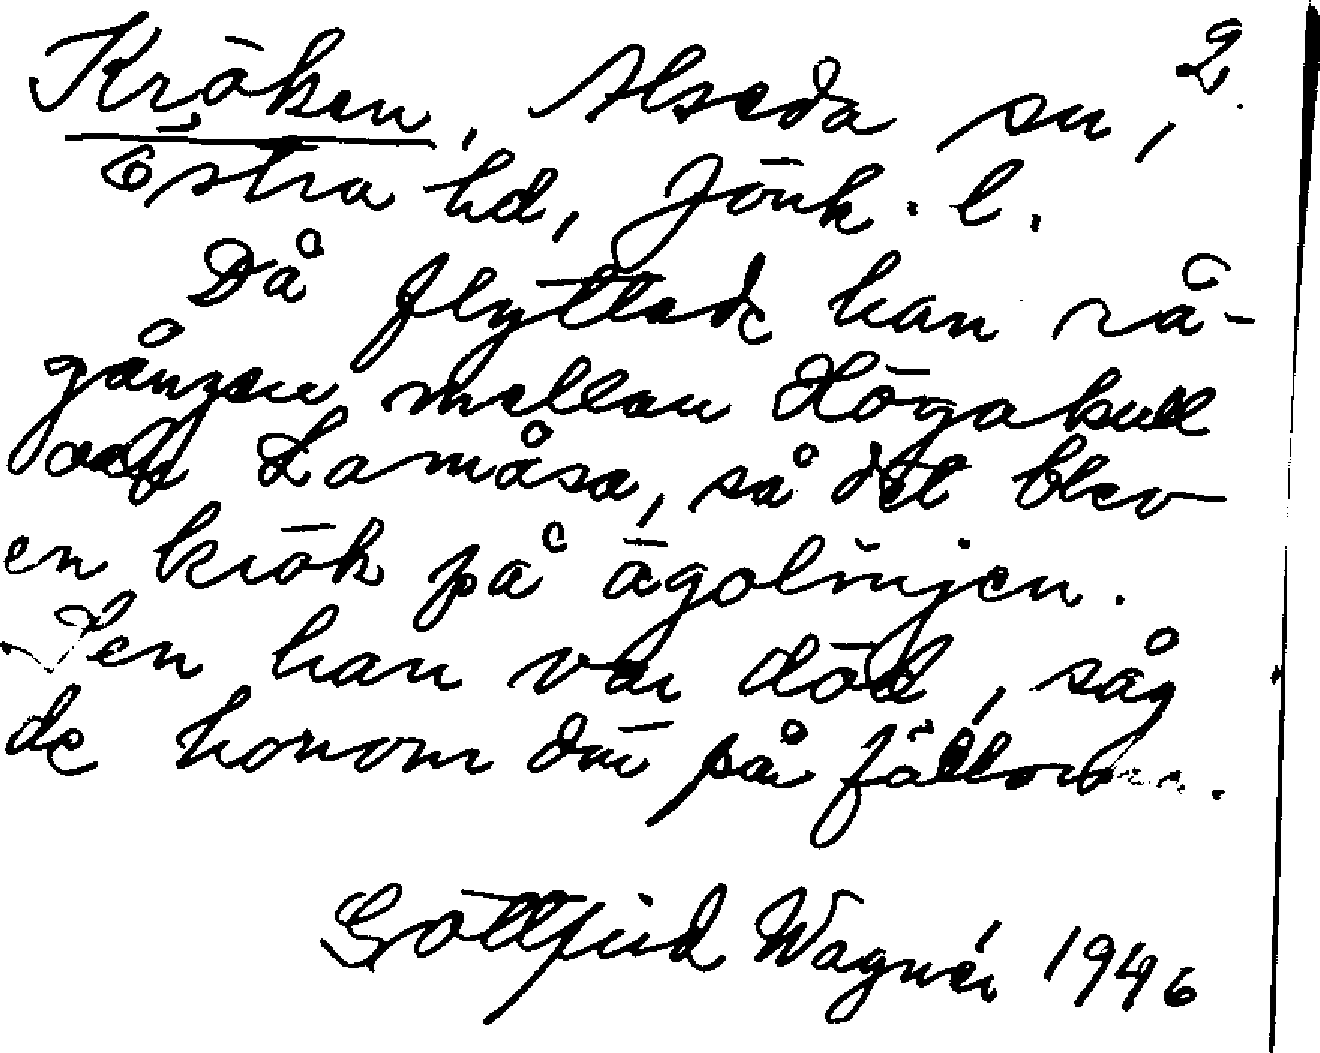 2.
Kröken, Alseda sn,
Östra hd, Jönk. l.
Då flyttade han rå-
gången mellan Högakull
och Lamåsa, så det blev
en krök på ägolinjen.
Sen han var död, såg
de honom där på
Gottfrid Wagnér 1946